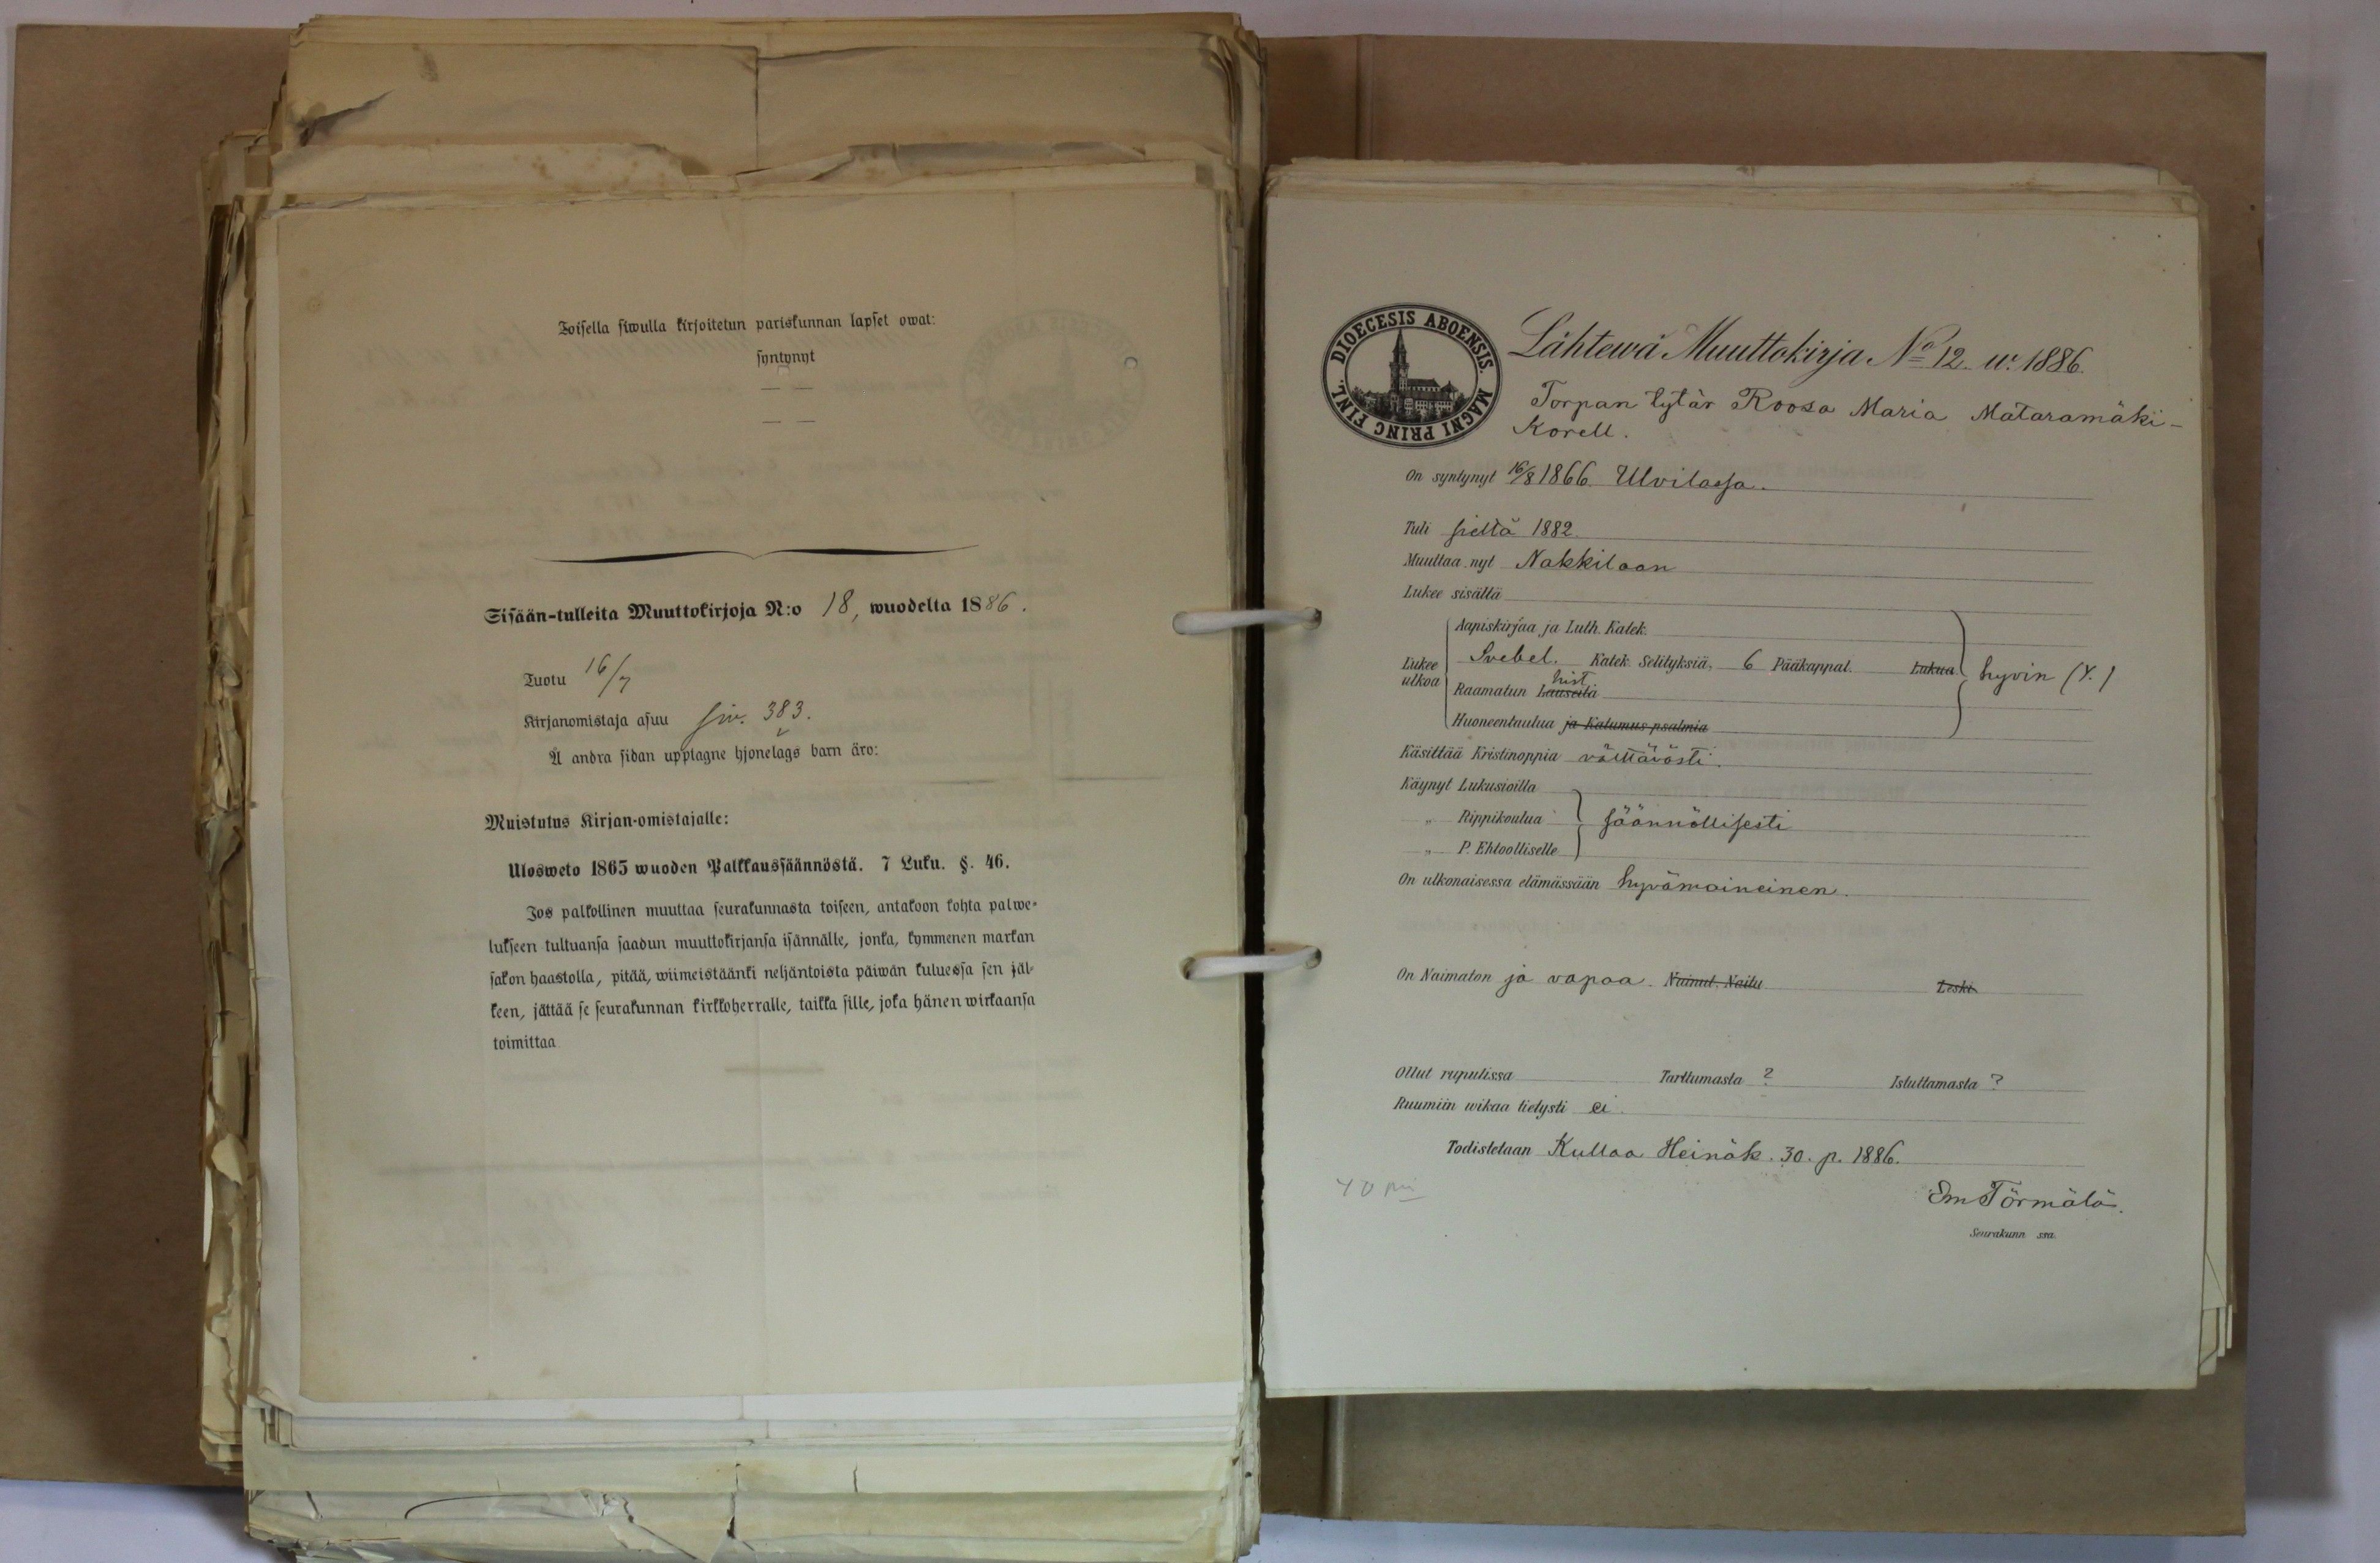 Toisella siwulla kirjoitetun pariskunnan lapset owat:
syntynyt
— —
— —
Sisään-tulleita Muuttokirjoja N:o 18, wuodelta 1886.
Tuotu 16/7
Kirjanomistaja asuu siv. 383.
Å andra sidan upptagne hjonelags barn äro:
Muistutus Kirjan-omistajalle:
Ulosweto 1865 wuoden Palkkaussäännöstä. 7 Luku. §. 46.
Jos palkollinen muuttaa seurakunnasta toiseen, antakoon kohta palwe-
lukseen tultuansa saadun muuttokirjansa isännälle, jonka, kymmenen markan
sakon haastolla, pitää, wiimeistäänki neljäntoista päiwän kuluessa sen jäl-
keen, jättää se seurakunnan kirkkoherralle, taikka sille, joka hänen wirkaansa
toimittaa
DIOECESIS ABOENSIS. MAGNI PRINC FINL.
Lähtewä Muuttokirja No 12 w. 1886.
Torpan tytär Roosa Maria Mataramäki-
Korell.
On syntynyt 16/8 1866 Ulvilassa.
Tuli sieltä 1882.
Muuttaa nyt Nakkilaan
Lukee sisältä
Lukee ulkoa
Aapiskirjaa ja Luth. Katek.
Svebel. Katek. Selityksiä, 6 Pääkappal. Lukua hyvin (Y.)
Raamatun Lauseita hist.
Huoneentaulua ja Katumus psalmia
Käsittää Kristinoppia välttävästi.
Käynyt Lukusioilla
„ Rippikoulua säännöllisesti
„ P. Ehtoolliselle
On ulkonaisessa elämässään hyvämaineinen.
On Naimaton ja vapaa. Nainut. Naitu Leski
Ollut rupulissa Tarttumasta ? Istuttamasta ?
Ruumiin wikaa tietysti ei.
Todistetaan Kullaa Heinäk. 30. p. 1886.
Em Törmälä.
Seurakunn ssa.